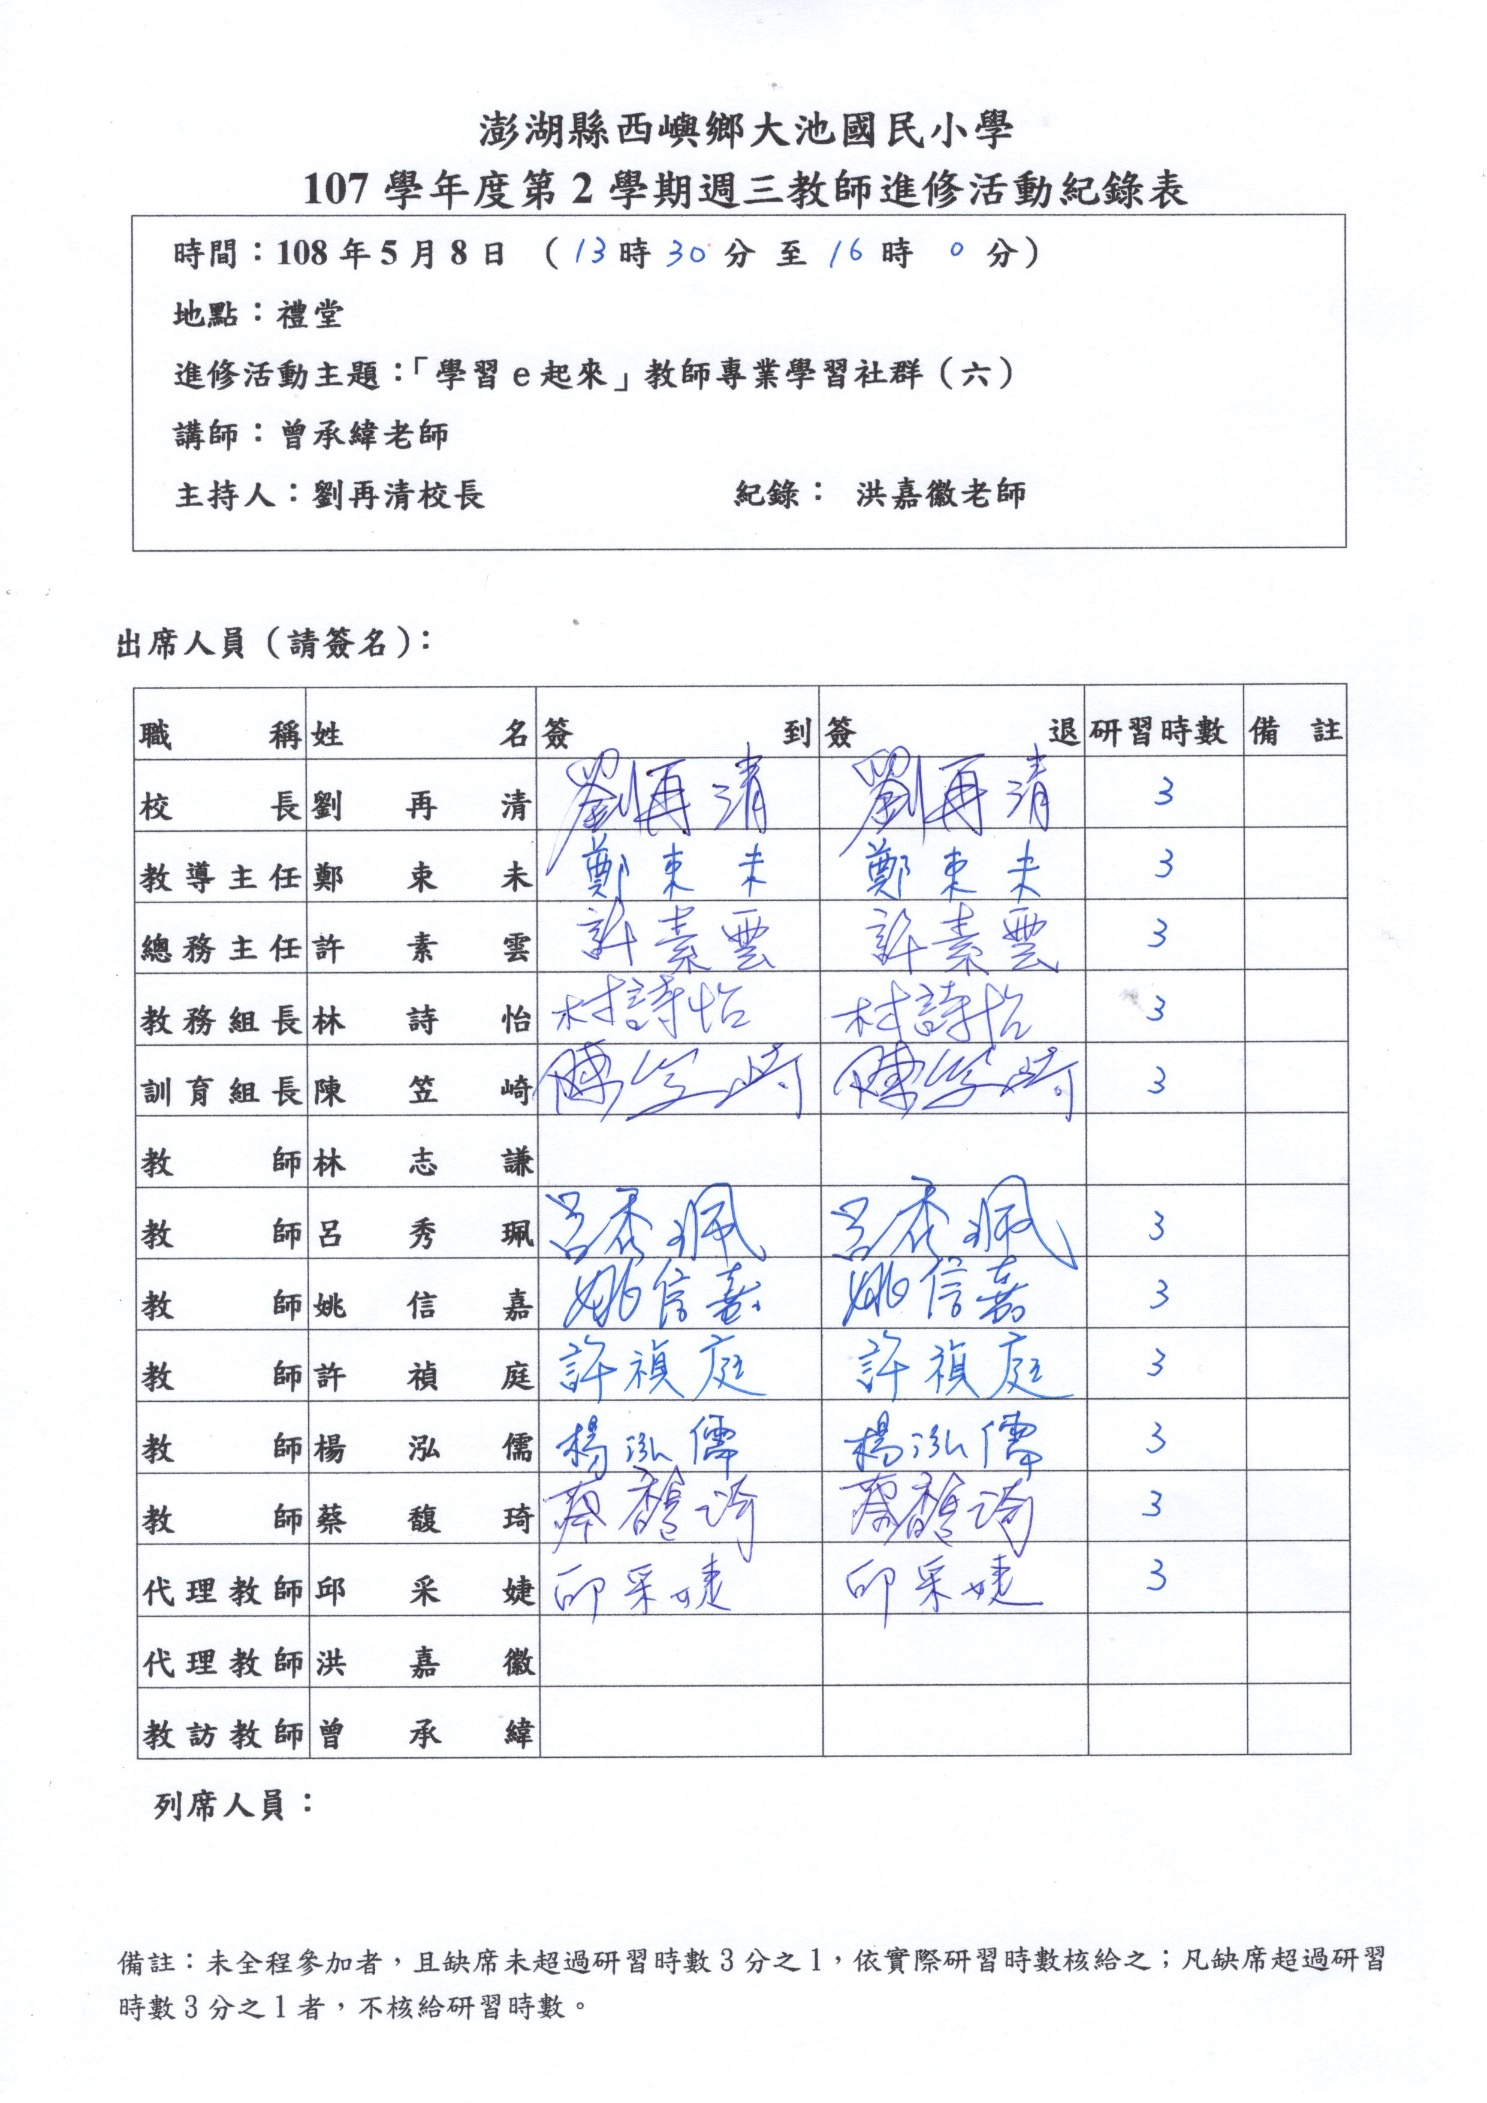 澎湖縣西嶼鄉大池國民小學
107 學年度第 2 學期週三教師進修活動紀錄表
時間：108 年 5 月 8 日 （13 時 30 分 至 16 時 0 分）
地點：禮堂
進修活動主題：「學習 e 起來」教師專業學習社群（六）
講師：曾承緯老師
主持人：劉再清校長 紀錄： 洪嘉徽老師
出席人員（請簽名）：
職稱 姓名 簽到 簽退 研習時數 備註
校長 劉再清 劉再清 劉再清 3
教導主任 鄭束未 鄭束未 鄭束未 3
總務主任 許素雲 許素雲 許素雲 3
教務組長 林詩怡 林詩怡 林詩怡 3
訓育組長 陳笠崎 陳笠崎 陳笠崎 3
教師 林志謙
教師 呂秀珮 呂秀珮 呂秀珮 3
教師 姚信嘉 姚信嘉 姚信嘉 3
教師 許禎庭 許禎庭 許禎庭 3
教師 楊泓儒 楊泓儒 楊泓儒 3
教師 蔡馥琦 蔡馥琦 蔡馥琦 3
代理教師 邱采婕 邱采婕 邱采婕 3
代理教師 洪嘉徽
教訪教師 曾承緯
列席人員：
備註：未全程參加者，且缺席未超過研習時數 3 分之 1，依實際研習時數核給之；凡缺席超過研習
時數 3 分之 1 者，不核給研習時數。